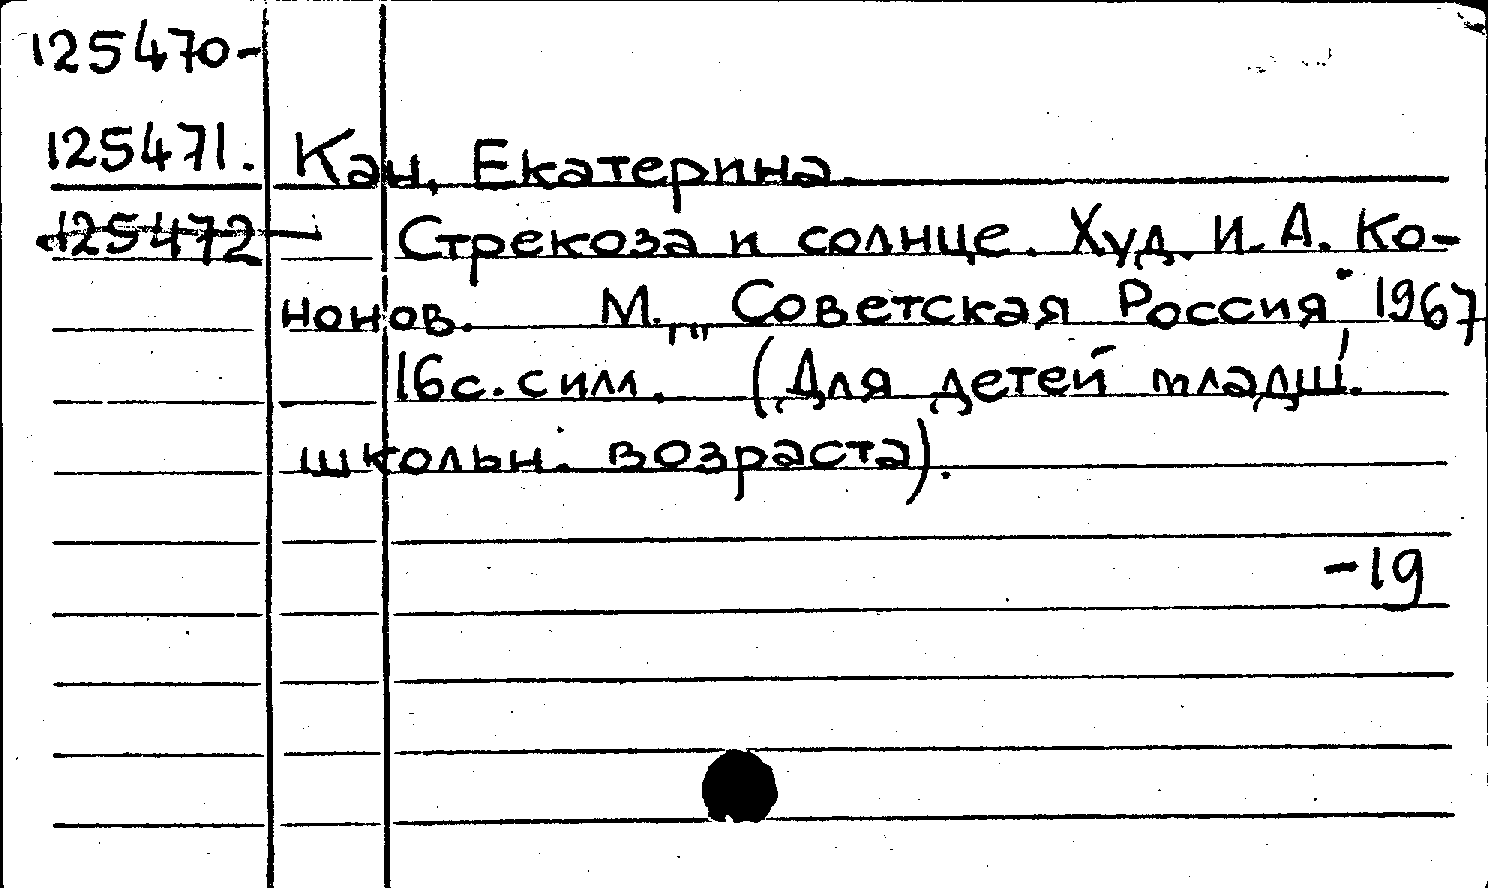 125470-
125471. Кан, Екатерина.
125472 Стрекоза и солнце. Худ. И. А. Ко-
нонов. М., „Советская Россия" 1967,
16с. с илл. (Для детей младш.
школьн. возраста).
-19